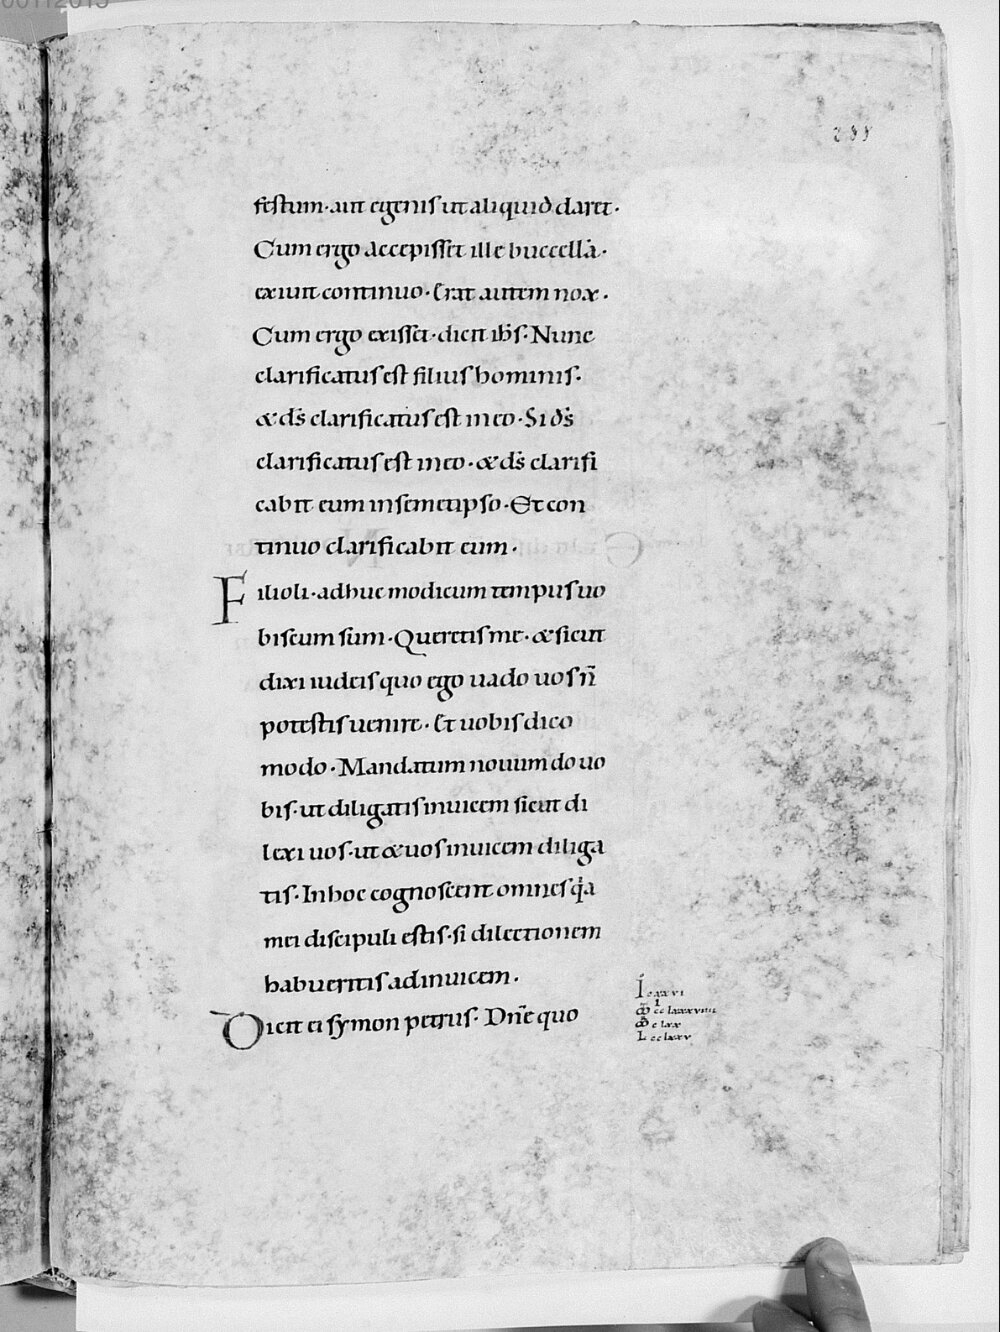 festum· aut egenis ut aliquid daret·
Cum ergo accepisset ille buccellā·
exiuit continuo· Erat autem nox·
Cum ergo exisset· dicit ihs̄· Nunc
clarificatus est filius hominis·
& ds̄ clarificatus est in eo· Si ds̄
clarificatus est in eo· & ds̄ clarifi
cabit eum in semetipso· Et con
tinuo clarificabit eum·
Filioli· adhuc modicum tempus uo
biscum sum· Queretis me· & sicut
dixi iudeis quo ego uado uos n̄
potestis uenire· Et uobis dico
modo· Mandatum nouum do uo
bis· ut diligatis inuicem sicut di
lexi uos· ut & uos inuicem diliga
tis· In hoc cognoscent omnes qa
mei discipuli estis· si dilectionem
habueritis ad inuicem·
Dicit ei symon petrus· Dn̄e quo